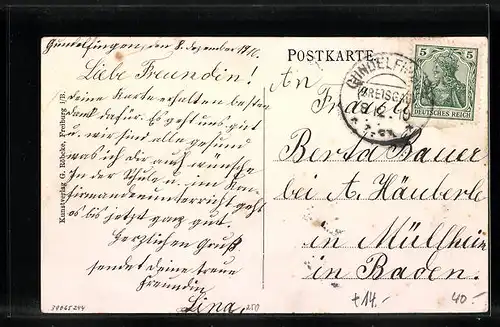 Gundelfingen, den 8. Dezember 1910.
Liebe Freundin!
deine Karte erhalten besten
dank dafür. Es geht uns gut
u. wir sind alle gesund
was ich dir auch wünsche
In der Schule u. im Kon
firmandenunterricht geht
es bis jetzt ganz gut.
Herzlichen Gruß
sendet deine treue
Freundin
Lina.
POSTKARTE
An
Berta Bauer
bei A. Häuberle
in Müllheim
in Baden.
GUNDELFINGEN
(BREISGAU)
5 5
DEUTSCHES REICH
Kunstverlag G. Röbcke, Freiburg i/B.
250
+14.-
40.-